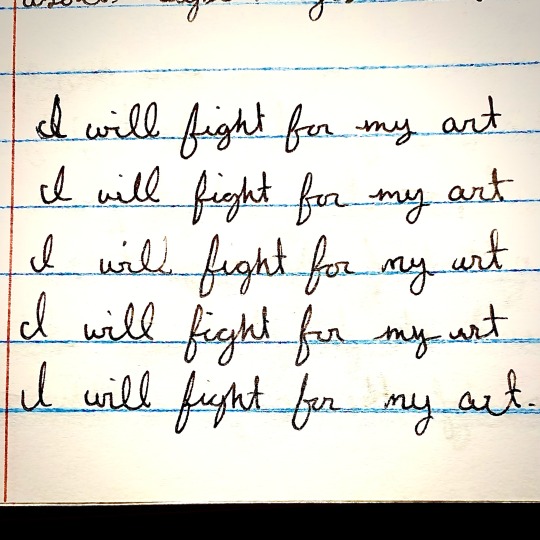 I will fight for my art
I will fight for my art
I will fight for my art
I will fight for my art
I will fight for my art.